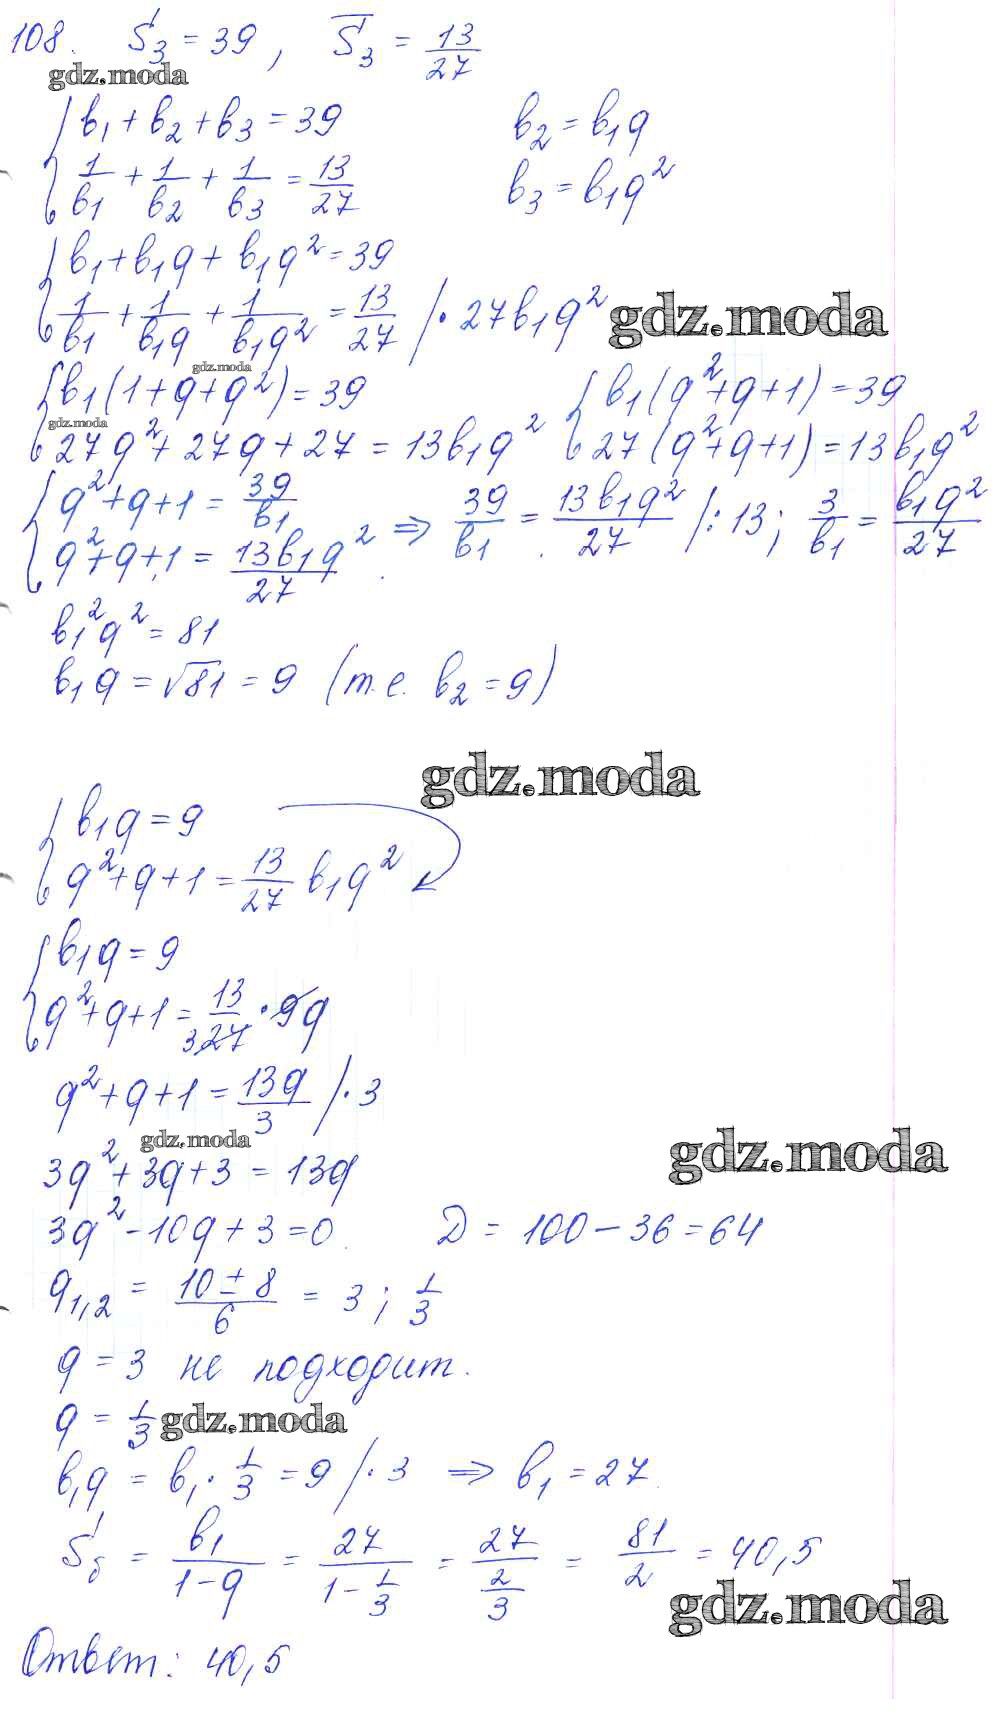 108. S₃ = 39, S̅₃ = 13/27
gdz.moda
{ b₁ + b₂ + b₃ = 39    b₂ = b₁q
{ 1/b₁ + 1/b₂ + 1/b₃ = 13/27    b₃ = b₁q²
{ b₁ + b₁q + b₁q² = 39
{ 1/b₁ + 1/(b₁q) + 1/(b₁q²) = 13/27 / · 27b₁q² gdz.moda
gdz.moda
{ b₁(1 + q + q²) = 39    { b₁(q² + q + 1) = 39
gdz.moda
{ 27q² + 27q + 27 = 13b₁q²    { 27(q² + q + 1) = 13b₁q²
{ q² + q + 1 = 39/b₁
{ q² + q + 1 = 13b₁q²/27 ⇒ 39/b₁ = 13b₁q²/27 / : 13; 3/b₁ = b₁q²/27
b₁²q² = 81
b₁q = √81 = 9 (т.е. b₂ = 9)
gdz.moda
{ b₁q = 9
{ q² + q + 1 = 13/27 b₁q²
{ b₁q = 9
{ q² + q + 1 = 13/27 · 9q
3
q² + q + 1 = 13q/3 / · 3
gdz.moda gdz.moda
3q² + 3q + 3 = 13q
3q² - 10q + 3 = 0    D = 100 - 36 = 64
q₁,₂ = (10 ± 8)/6 = 3; 1/3
q = 3 не подходит.
q = 1/3 gdz.moda
b₁q = b₁ · 1/3 = 9 / · 3 ⇒ b₁ = 27
Sб = b₁/(1 - q) = 27/(1 - 1/3) = 27/(2/3) = 81/2 = 40,5
gdz.moda
Ответ: 40,5